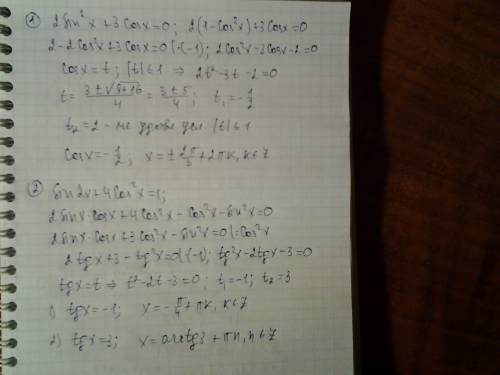 ① 2sin²x + 3cosx = 0; 2(1-cos²x)+3cosx=0
2-2cos²x+3cosx=0 |·(-1); 2cos²x-3cosx-2=0
cosx=t; |t|≤1 ⇒ 2t²-3t-2=0
t= (3±√(9+16))/4 = (3±5)/4; t₁=-1/2
t₂=2 - не удовл усл |t|≤1
cosx=-1/2; x=±2π/3+2πk, k∈Z
② sin2x+4cos²x=1;
2sinx·cosx+4cos²x-cos²x-sin²x=0
2sinx·cosx+3cos²x-sin²x=0 |:cos²x
2tgx+3-tg²x=0 |·(-1); tg²x-2tgx-3=0
tgx=t ⇒ t²-2t-3=0; t₁=-1; t₂=3
1) tgx=-1; x=-π/4+πk, k∈Z
2) tgx=3; x=arctg3+πn, n∈Z